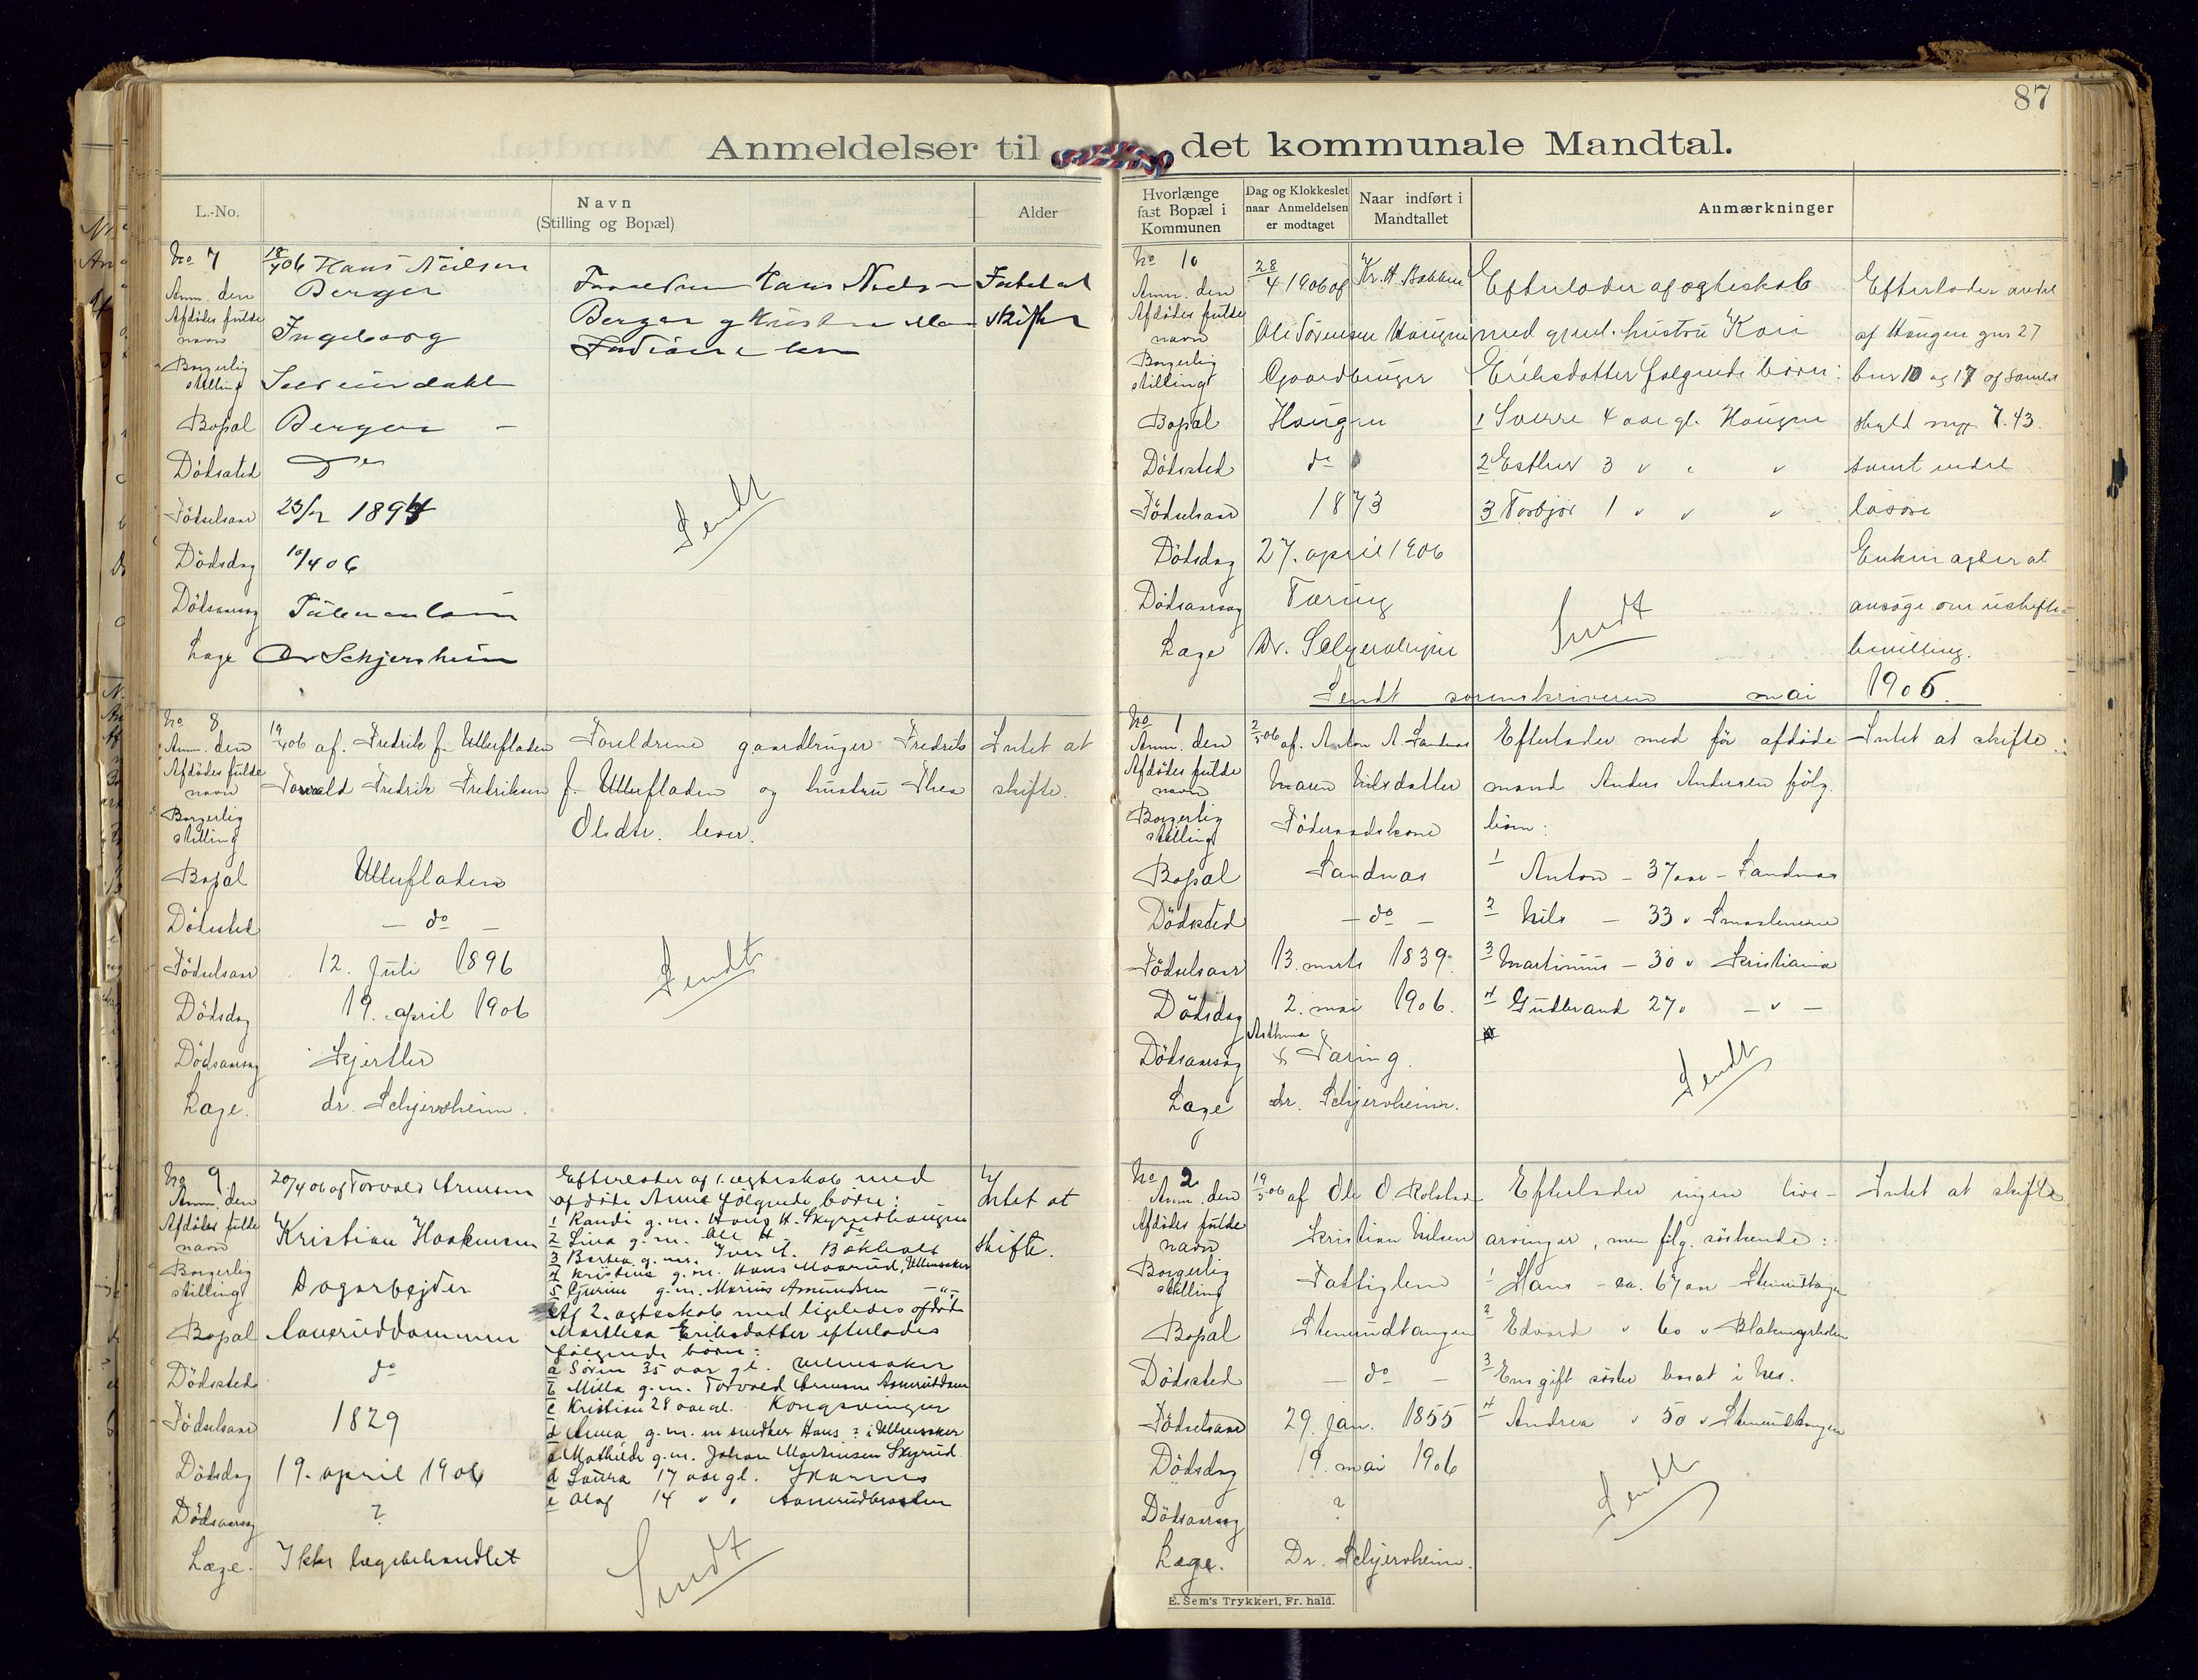 87
Anmeldelser til det kommunale Mandtal.
L.-No.
Navn
(Stilling og Bopæl)
Alder
Hvorlænge
fast Bopæl i
Kommunen
Dag og Klokkeslet
naar Anmeldelsen
er modtaget
Naar indført i
Mandtallet
Anmærkninger
No 7
Anm. den 18/4 06 Hans Nielsen
Berger
Afdödes fulde
navn Ingeborg
Borgerlig
stilling
Bopæl Berger
Dödssted Do
Födselsaar 23/2 1894
Dödsdag 10/4 06
Dödsaarsag
Læge Dr Schjersheim
Hans Nielsen
Berger og
Intet at
skifte
Sendt
No 8
Anm. den 19/4 06 af. Fredrik f. Ullerfladen
Afdödes fulde
navn Torvald Fredrik Fredriksen
Borgerlig
stilling
Bopæl Ullerfladen
Dödssted – do –
Födselsaar 12. juli 1896
Dödsdag 19. april 1906
Dödsaarsag Kjertler
Læge. dr. Schjersheim.
Foreldrene gaardbruger Fredrik
f. Ullerfladen og hustru Thea
Olsdtr. lever.
Intet at
skifte.
Sendt
No 9
Anm. den 20/4 06 af Torvald Arnesen
Afdödes fulde
navn Kristian Haakensen
Borgerlig
stilling Dagarbejder
Bopæl Aaneruddammen
Dödssted do
Födselsaar 1829
Dödsdag 19. april 1906
Dödsaarsag ?
Læge. Ikke lægebehandlet
Efterlader af 1. egteskab med
afdöde Anne fölgende börn:
1 Randi g.m. Hans H. Skyrudhaugen
2 Lina g.m. Ole H. do
3 Bertea g.m. Iver A. Bakholt
4 Kristine g.m. Hans Maarud, Ullensaker
5 Gurine g.m. Marius Asmundsen – „ –
Af 2. egteskab med ligeledes afdöde
Marthea Eriksdatter efterlades
fölgende börn:
a Sören 35 aar gl. Ullensaker
b Milla g.m. Torvald Arnesen Aaneruddam
c Kristian 28 aar gl. Kongsvinger
d Anna g.m. en snedker Hans ? i Ullensaker
e Mathilde g.m. Johan Martinsen Skyrud
d Laura 17 aar gl. Skarnes
e Olaf 14 „ „ Aanerudbraaten
Intet at
skifte.
Sendt
No 10
Anm. den 28/4 1906 af Kr. H. Bakken
Afdödes fulde
navn Ole Sörensen Haugen
Borgerlig
stilling Gaardbruger
Bopæl Haugen
Dödssted do
Födselsaar 1873
Dödsdag 27. april 1906
Dödsaarsag Tæring
Læge Dr. Schjersheim
Efterlader af egteskab
med gjenl. hustru Kari
Eriksdatter fölgende börn:
1 Sverre 4 aar gl. Haugen
2 Esther 3 „ „ „
3 Torbjör 1 „ „ „
Sendt
Efterlader andel
af Haugen gnr 27
bnr 10 og 17 af samlet
skyld mrk 7.43.
samt endel
lösöre
Enken agter at
ansöge om uskifte=
bevilling.
Sendt sorenskriveren mai 1906.
No 1
Anm. den 2/5 06 af. Anton A. Sandnæs
Afdödes fulde
navn Maren Nilsdatter
Borgerlig
stilling Föderaadskone
Bopæl Sandnæs
Dödssted – do –
Födselsaar 13. marts 1839.
Dödsdag 2. mai 1906.
Dödsaarsag Asthma & Tæring.
Læge dr. Schjersheim.
Efterlader med för afdöde
mand Anders Andersen fölg.
börn:
1 Anton – 37 aar – Sandnæs
2 Nils – 33 „ Smaalenene
3 Martinius – 30 „ Kristiania
4 Gudbrand 27 „ – „ –
Intet at skifte.
Sendt
No 2
Anm. den 19/5 06 af Ole O. Rolstad
Afdödes fulde
navn Kristian Nilsen
Borgerlig
stilling Fattiglem
Bopæl Stenrudtangen
Dödssted – do –
Födselsaar 29. jan. 1855
Dödsdag 19. mai 1906
Dödsaarsag ?
Læge. Dr. Schjersheim.
Efterlader ingen livs-
arvinger, men fölg. söskende:
1 Hans – ca. 67 aar – Stenrudtangen
2 Edvard „ 60 „
3 En gift söster bosat i Nes.
4 Andrea „ 50 „ Stenrudtangen
Intet at skifte
Sendt
E. Sem's Trykkeri, Fr. hald.